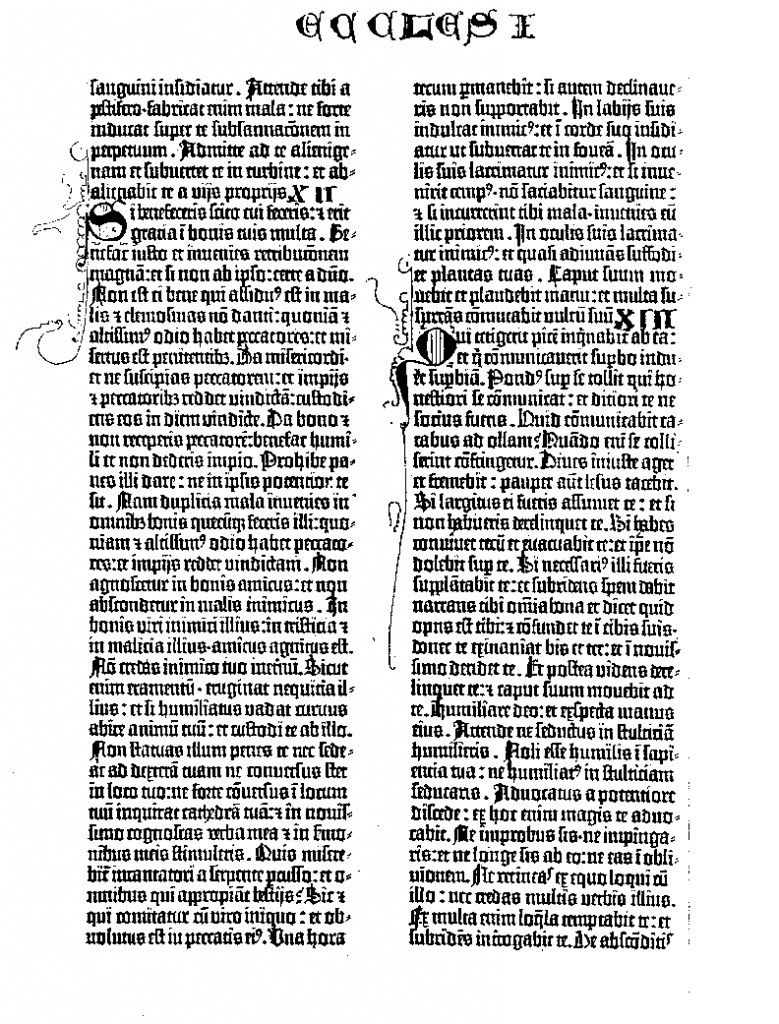 ECCLESI
sanguini insidiatur. Attende tibi a
pestifero·fabricat enim mala: ne forte
inducat super te subsannacōnem in
perpetuum. Admitte ad te alienige-
nam et subvertet te in turbine: et ab-
alienabit te a vijs proprijs. XII
Si benefeceris scito cui feceris: ⁊ erit
gratia ī bonis tuis multa. Be-
nefac iusto et invenies retributionem
magnā: et si non ab ipso: certe a dño.
Non est ei bene qui assiduꝰ est in ma-
lis ⁊ elemosinas nō danti: quoniā ⁊
altissimꝰ odio habet peccatores: et mi-
sertus est penitentibꝫ. Da misericordi
et ne suscipias peccatorem: et impijs
⁊ peccatoribꝫ reddet vindictā: custodi-
ens eos in diem vindicte. Da bono ⁊
non receperis peccatorē: benefac humi-
li et non dederis impio. Prohibe pa-
nes illi dare: ne in ipsis potentior te
sit. Nam duplicia mala invenies in
omnibꝫ bonis quecūqꝫ feceris illi: quo-
niam ⁊ altissimꝰ odio habet peccato-
res: et impijs reddet vindictam. Non
agnoscetur in bonis amicus: et non
abscondetur in malis inimicus. In
bonis viri inimici illius: in tristicia ⁊
in malicia illius·amicus agnitus est.
Nō credas inimico tuo ineternū. Sicut
enim eramentū·eruginat nequicia il-
lius: et si humiliatus vadat curvus
abice animū tuū: et custodi te ab illo.
Non statuas illum penes te nec sede-
at ad dexterā tuam ne conversus stet
in loco tuo: ne forte cōversus ī locum
tuū inquirat cathedrā tuā: ⁊ in novis-
simo cognoscas verba mea ⁊ in sermo-
nibus meis stimuleris. Quis misere-
bit̄ incantatori a serpente pcusso: et o-
mnibus qui appropiāt bestijs? Sic ⁊
qui comitatur cū viro iniquo: et ob-
volutus est in peccatis eiꝰ. Una hora
tecum pmanebit: si autem declinave-
ris non supportabit. In labijs suis
indulcat inimicꝰ: et ī corde suo insidi-
atur ut subvertat te in foveā. In ocu-
lis suis lacrimatur inimicꝰ: et si inve-
nerit tempꝰ·nō saciabitur sanguine:
⁊ si incurrerint tibi mala·invenies eū
illic priorem. In oculis suis lacrima-
tur inimicꝰ: et quasi adiuvās suffodi-
et plantas tuas. Caput suum mo-
vebit et plaudebit manu: et multa su-
surrās cōmutabit vultū suū. XIII
Qui tetigerit picē inqnabit̄ ab ea:
et q̄ cōmunicaverit supbo indu-
et supbiā. Pondꝰ sup se tollit qui ho-
nestiori se cōmunicat: et ditiori te ne
socius fueris. Quid cōmunicabit ca-
cabus ad ollam? Quādo enī se colli-
serint cōfringetur. Dives iniuste aget
et fremebit: pauper aūt lesus tacebit.
Si largitus ei fueris assumet te: et si
non habueris derelinquet te. Si habes
convivet tecū et evacuabit te: et ipse nō
dolebit sup te. Si necessariꝰ illi fueris
supplātabit te: et subridens spem dabit
narrans tibi omīa bona et dicet quid
opus est tibi: ⁊ cōfundet te ī cibis suis·
donec te exinaniat bis et ter: et ī novis-
simo deridet te. Et postea videns dere-
linquet te: ⁊ caput suum movebit ad
te. Humiliare deo: et exspecta manus
eius. Attende ne seductus in stulticiā
humilieris. Noli esse humilis ī sapi-
entia tua: ne humiliatꝰ in stulticiam
seducaris. Advocatus a potentiore
discede: ex hoc enim magis te advo-
cabit. Ne improbus sis·ne impinga-
ris: et ne longe sis ab eo: ne eas ī obli-
vionem. Ne retineas ex equo loqui cū
illo: nec credas multis verbis illius.
Ex multa enim loqla temptabit te: et
subridēs interrogabit te. De absconditis